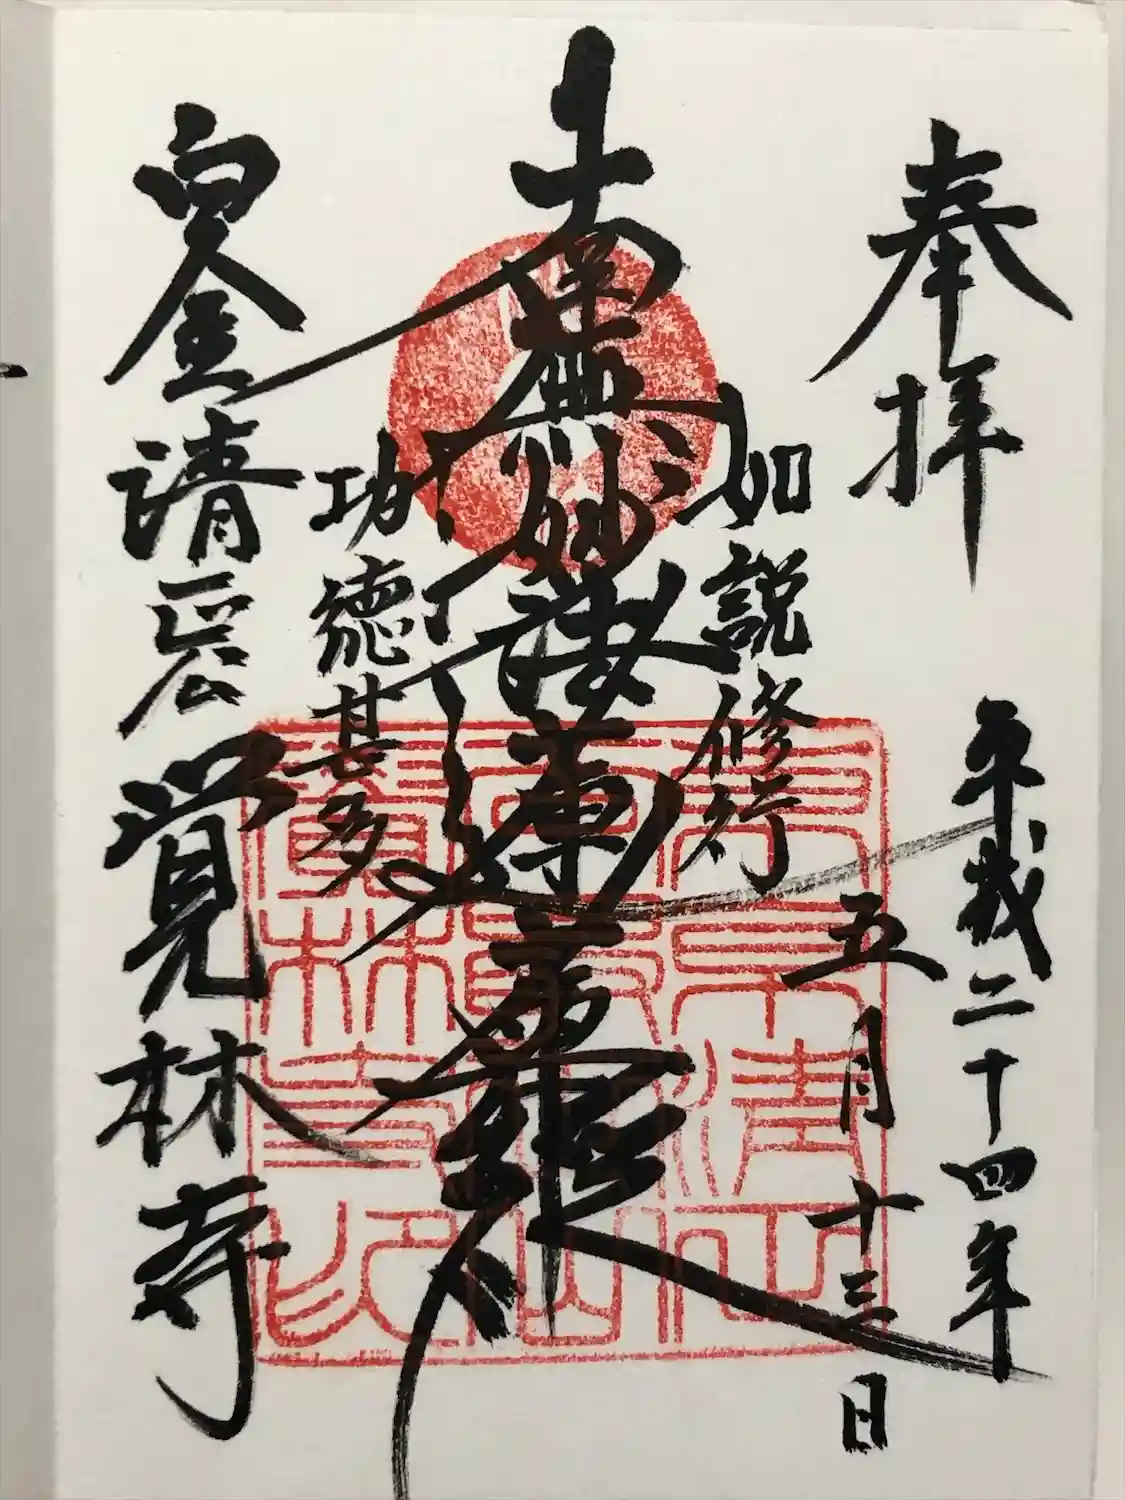 奉拝
平成二十四年
五月十三日
如説修行
南無妙法蓮華経
功德甚多
白金清正公
覚林寺